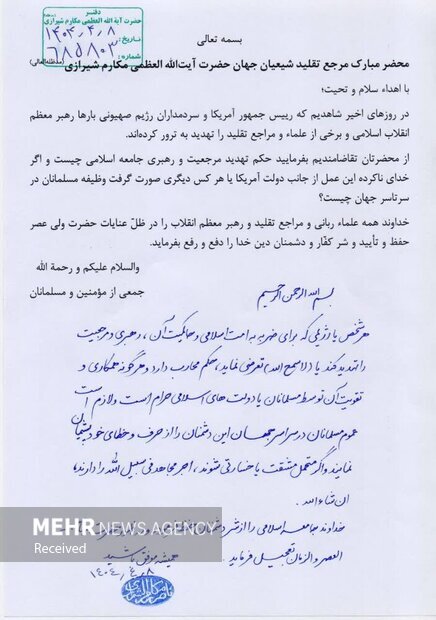 دفتر
حضرت آیة الله العظمی مکارم شیرازی
تاریخ: ۱۴۰۴/۴/۸
شماره:
بسمه تعالی
محضر مبارک مرجع تقلید شیعیان جهان حضرت آیت‌الله العظمی مکارم شیرازی (مدظله‌العالی)
با اهداء سلام و تحیت؛
در روزهای اخیر شاهدیم که رییس جمهور آمریکا و سردمداران رژیم صهیونی بارها رهبر معظم
انقلاب اسلامی و برخی از علماء و مراجع تقلید را تهدید به ترور کرده‌اند.
از محضرتان تقاضامندیم بفرمایید حکم تهدید مرجعیت و رهبری جامعه اسلامی چیست و اگر
خدای ناکرده این عمل از جانب دولت آمریکا یا هر کس دیگری صورت گرفت وظیفه مسلمانان در
سرتاسر جهان چیست؟
خداوند همه علماء ربانی و مراجع تقلید و رهبر معظم انقلاب را در ظلّ عنایات حضرت ولی عصر
حفظ و تأیید و شر کفّار و دشمنان دین خدا را دفع و رفع بفرماید.
والسلام علیکم و رحمة الله
جمعی از مؤمنین و مسلمانان
بسم الله الرحمن الرحیم
هر شخص یا رژیمی که برای ضربه به امت اسلامی و حاکمیت آن، رهبری و مرجعیت
را تهدید کند یا (لا سمح الله) تعرضی نماید، حکم محارب دارد و هرگونه همکاری و
تقویت آن توسط مسلمانان یا دولت های اسلامی حرام است و لازم است
عموم مسلمانان در سراسر جهان این دشمنان را از حرف و خطای خود پشیمان
نمایند و اگر متحمل مشقت یا خسارتی شوند، اجر مجاهد فی سبیل الله را دارند،
ان شاء الله.
خداوند جامعه اسلامی را از شر دشمنان
العصر و الزمان تعجیل فرماید.
همیشه موفق باشید
۱۴۰۴/۴/۸
MEHR NEWS AGENCY
Received